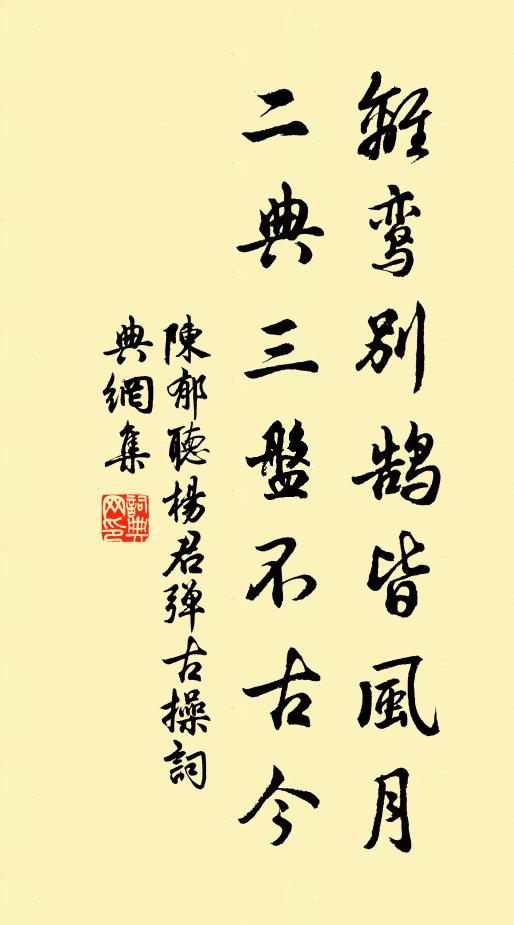 離鸾別鹄皆風月
二典三盤不古今
陳郁聽楊君弹古操詞
典網集
詞典
网印